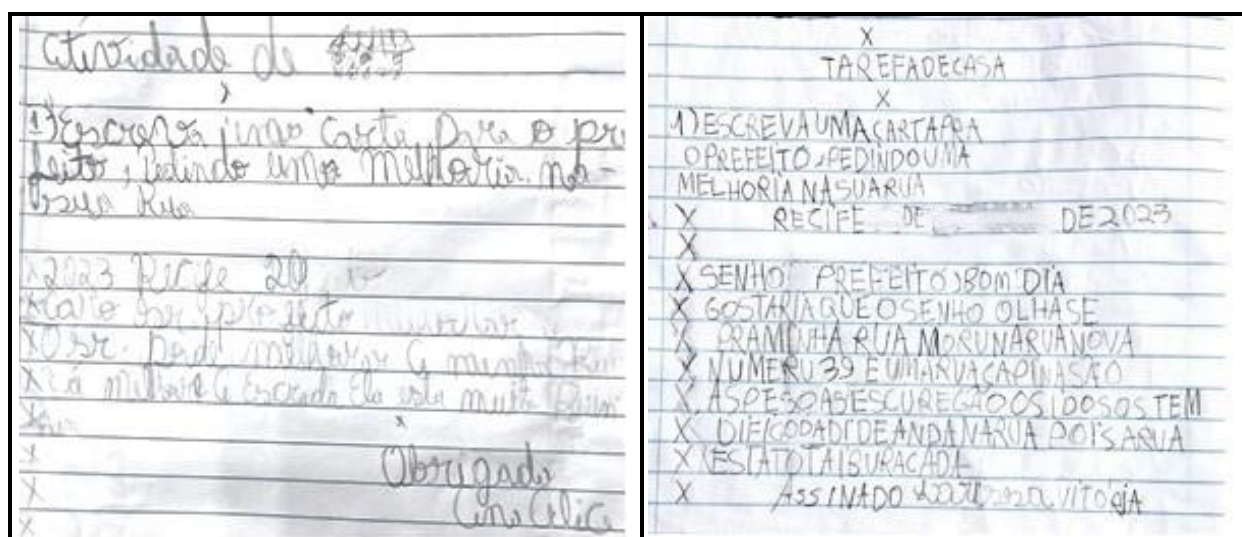 Atividade de
1) Escreva uma carta para o pre
feito, Pedindo uma Melhoria na
sua Rua
X 2023 Recife 20
X sr. prefeito
X O sr. pode melhorar a minha Rua
X lá a Escada Ela esta muito
X
X
X Obrigado
X Ana Alice
X
X
TAREFADECASA
X
1) ESCREVAUMACARTAPRA
OPREFEITO, PEDINDOUMA
MELHORIANASUARUA
X RECIFE DE DE 2023
X
X SENHO PREFEITO, BOM DIA
X GOSTARIAQUEOSENHO OLHASE
X PRAMINHA RUA MORUNARUANOVA
X NUMERU 39 EUMARUACAPINASÃO
X ASPESOASESCUREGÃOOSIDOSOSTEM
X DIFICODADIDEANDANARUA POISARUA
X ESTATOTAISURACADA
X ASSINADO VITORIA